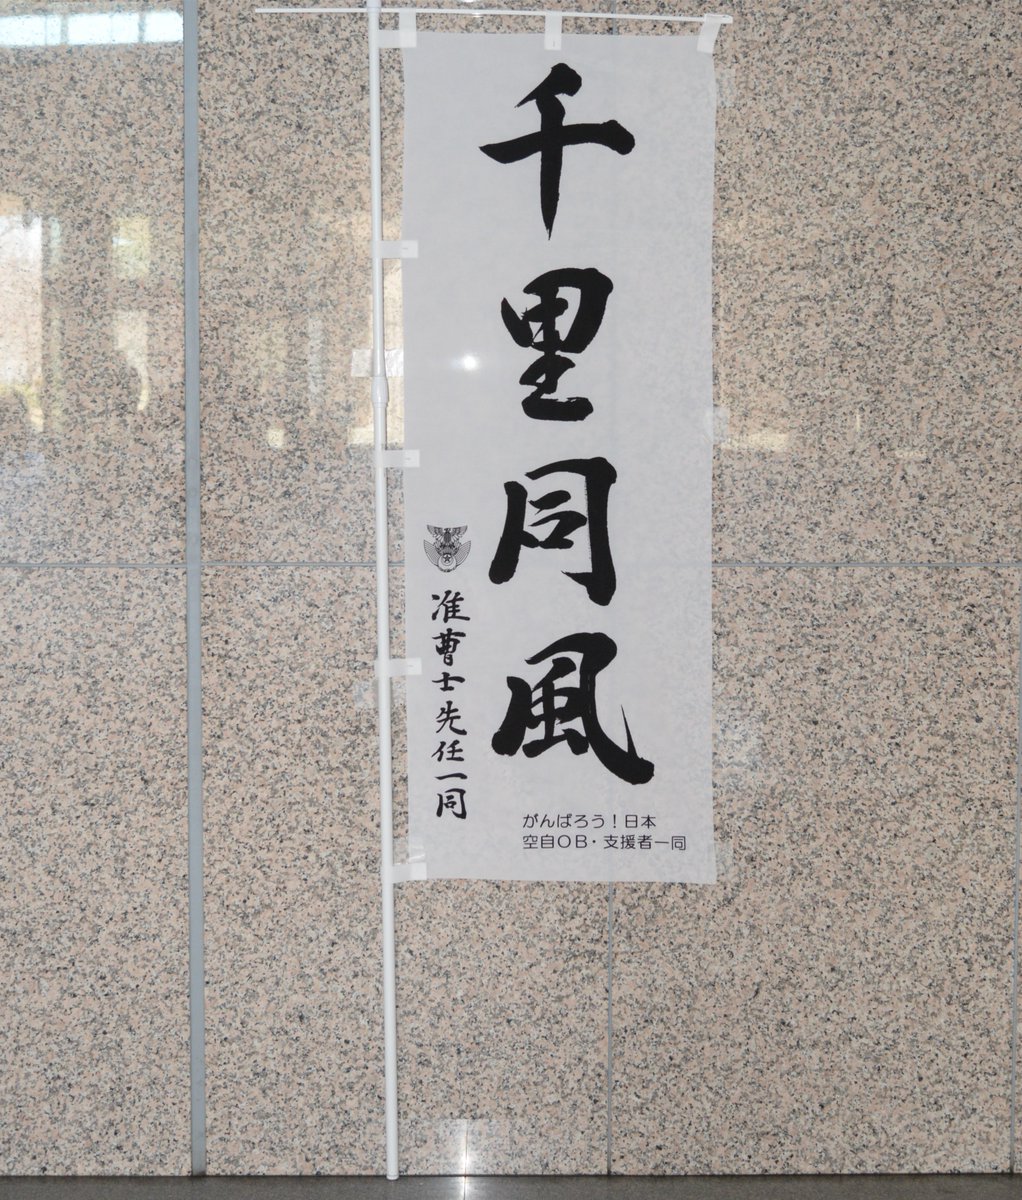 千里同風
准曹士先任一同
がんばろう！日本
空自OB・支援者一同